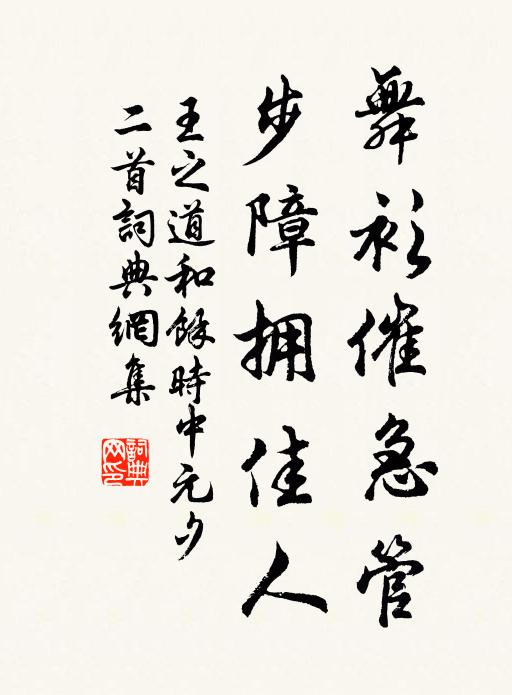 舞衫催急管
步障拥佳人
王之道和餘時中元夕
二首詞典網集
詞典網印